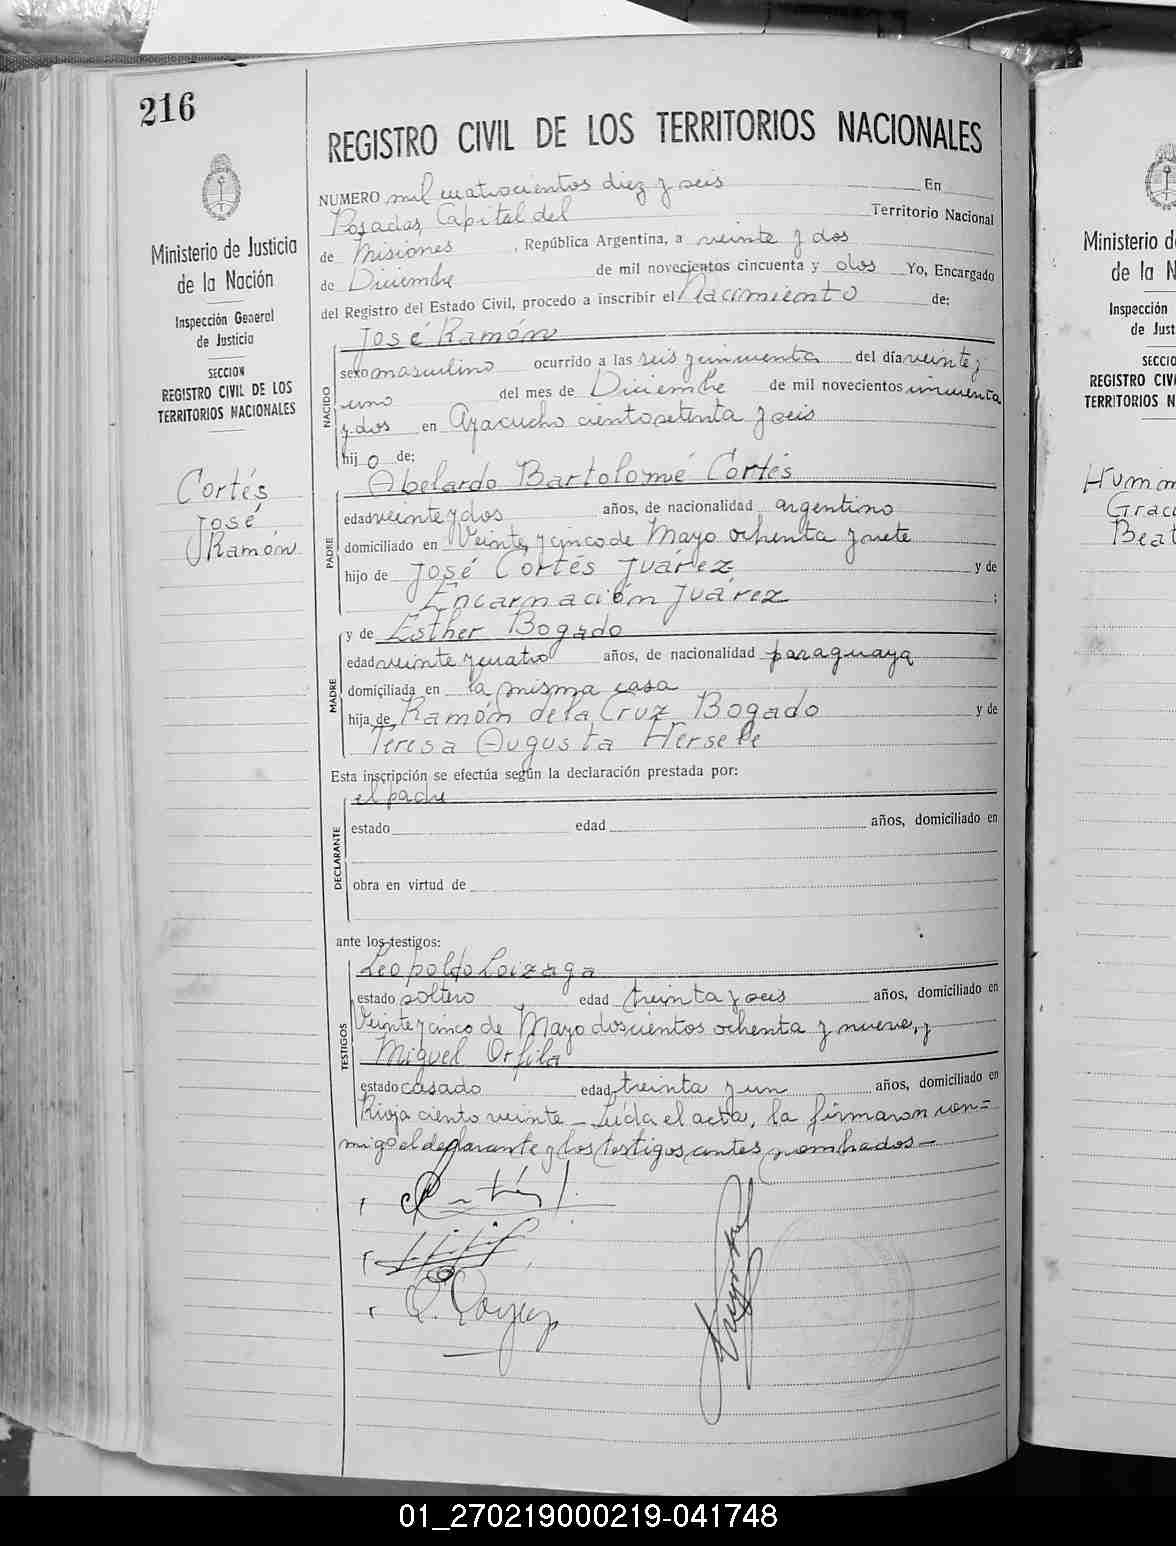 216
Ministerio de Justicia
de la Nación
Inspección General
de Justicia
SECCION
REGISTRO CIVIL DE LOS
TERRITORIOS NACIONALES
Cortés
José
Ramón
REGISTRO CIVIL DE LOS TERRITORIOS NACIONALES
NUMERO mil cuatrocientos diez y seis En
Posadas, Capital del Territorio Nacional
de Misiones, República Argentina, a veinte y dos
de Diciembre de mil novecientos cincuenta y dos Yo, Encargado
del Registro del Estado Civil, procedo a inscribir el Nacimiento de:
José Ramón
NACIDO
sexo masculino ocurrido a las seis y cincuenta del día veinte y
uno del mes de Diciembre de mil novecientos cincuenta
y dos en Ayacucho ciento setenta y seis
hij o de:
Abelardo Bartolomé Cortés
PADRE
edad veinte y dos años, de nacionalidad argentino
domiciliado en Veinte y cinco de Mayo ochenta y siete
hijo de José Cortés Juárez y de
Encarnación Juárez ;
y de Esther Bogado
MADRE
edad veinte y cuatro años, de nacionalidad paraguaya
domiciliada en la misma casa
hija de Ramón de la Cruz Bogado y de
Teresa Augusta Hersele
Esta inscripción se efectúa según la declaración prestada por:
el padre
DECLARANTE
estado edad años, domiciliado en
obra en virtud de
ante los testigos:
Leopoldo Loizaga
TESTIGOS
estado soltero edad treinta y seis años, domiciliado en
Veinte y cinco de Mayo doscientos ochenta y nueve, y
Miguel Orfila
estado casado edad treinta y un años, domiciliado en
Rioja ciento veinte - Leída el acta, la firmaron con=
migo el declarante y los testigos antes nombrados -
Ministerio d
de la N
Inspección
de Just
SECCIO
REGISTRO CIVI
TERRITORIOS N
Grac
Beat
01_270219000219-041748